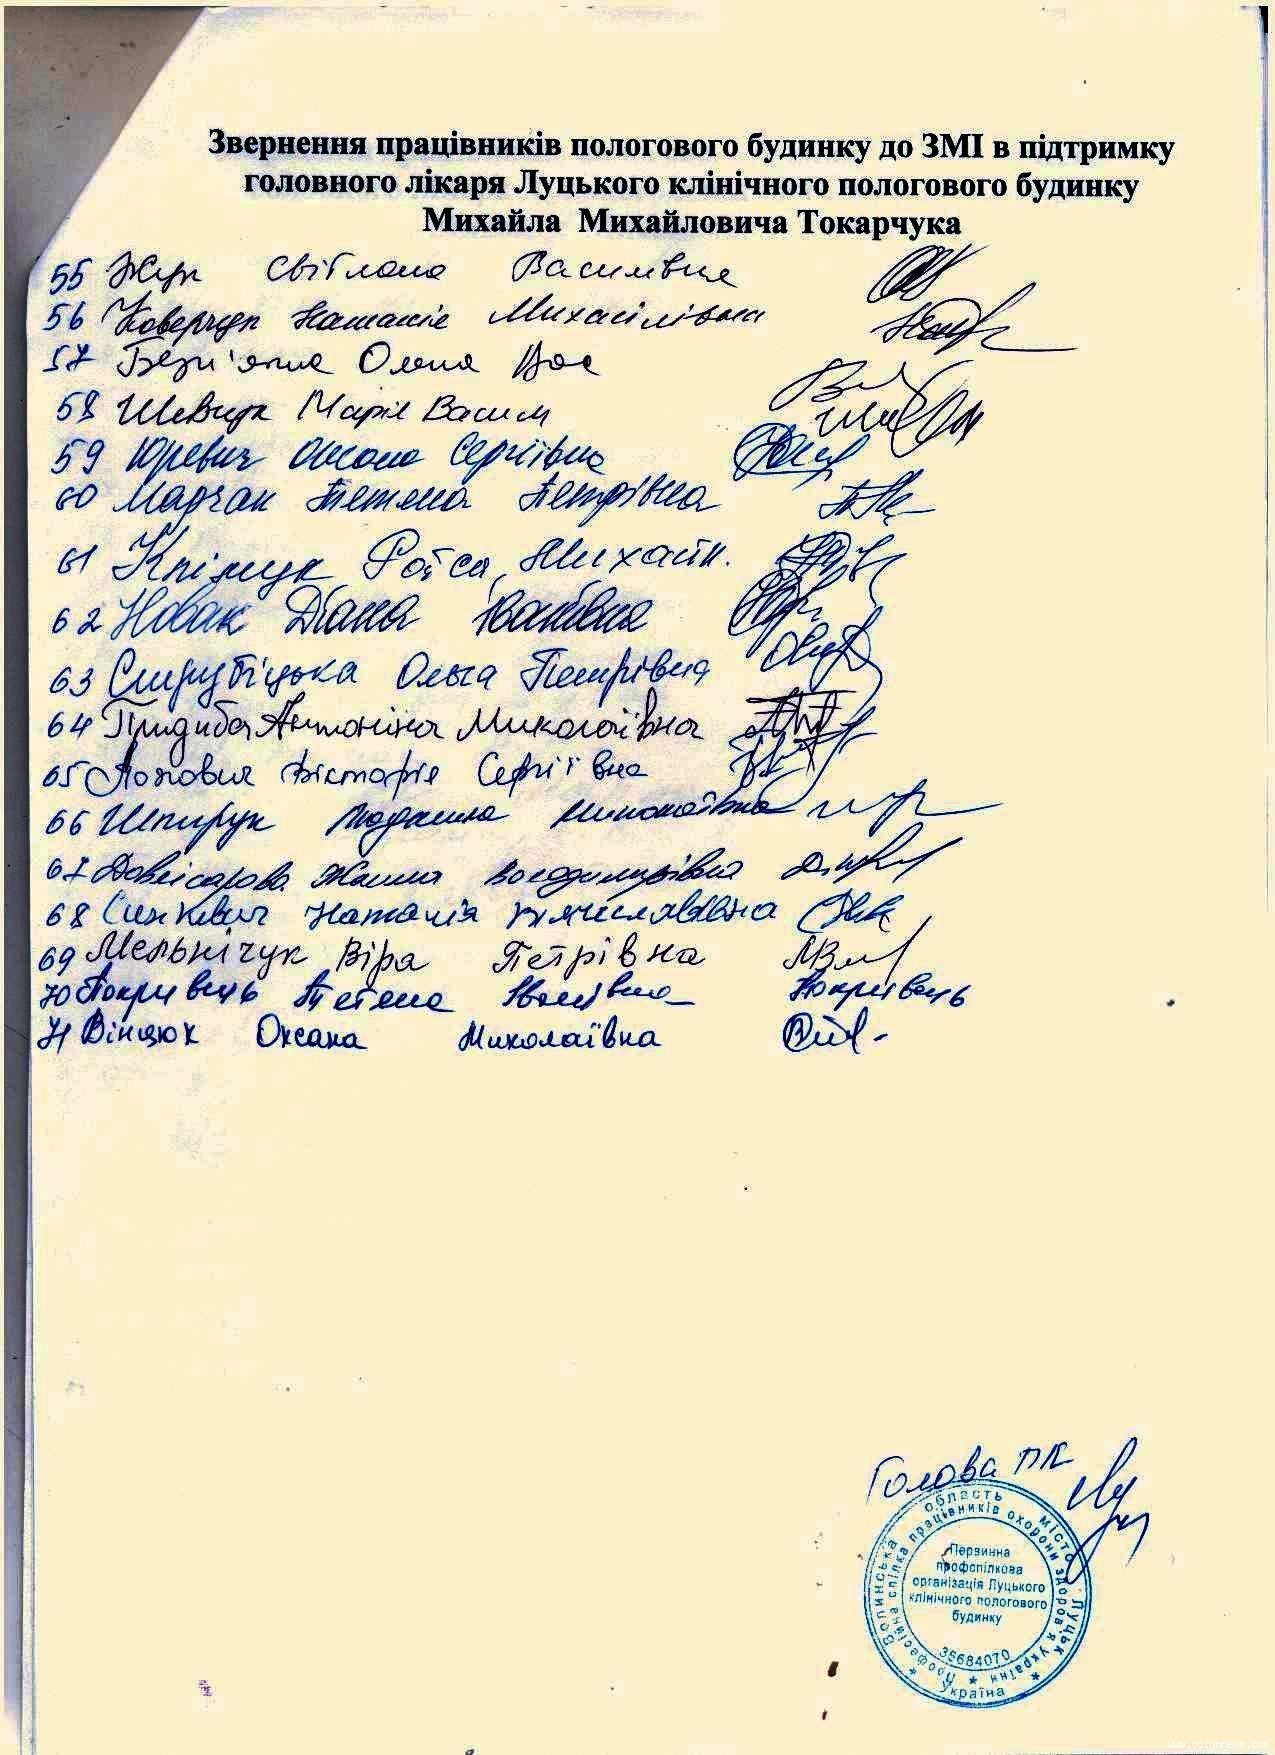 Звернення працівників пологового будинку до ЗМІ в підтримку
головного лікаря Луцького клінічного пологового будинку
Михайла Михайловича Токарчука
55 Жук Світлана Василівна
56 Ковернук Наталія Михайлівна
57 Олена Вас
58 Шевчук Марія Васим
59 Юревич Оксана Сергіївна
60 Марчак Тетяна Петрівна
61 Клімук Раїса Михайл.
62 Новак Діана Іванівна
63 Ольга Петрівна
64 Придиба Антоніна Миколаївна
65 Попович Вікторія Сергіївна
66 Шпирук Людмила Миколаївна
67 Жанна Володимирівна
68 Синкевич Наталія Вячеславівна
69 Мельничук Віра Петрівна
70 Покривець Тетяна Іванівна Покривець
71 Вінцюк Оксана Миколаївна
Голова ПК
Волинська область місто Луцьк
Професійна спілка працівників охорони здоров'я України
Первинна
профспілкова
організація Луцького
клінічного пологового
будинку
36684070
Україна
www.volynnews.com